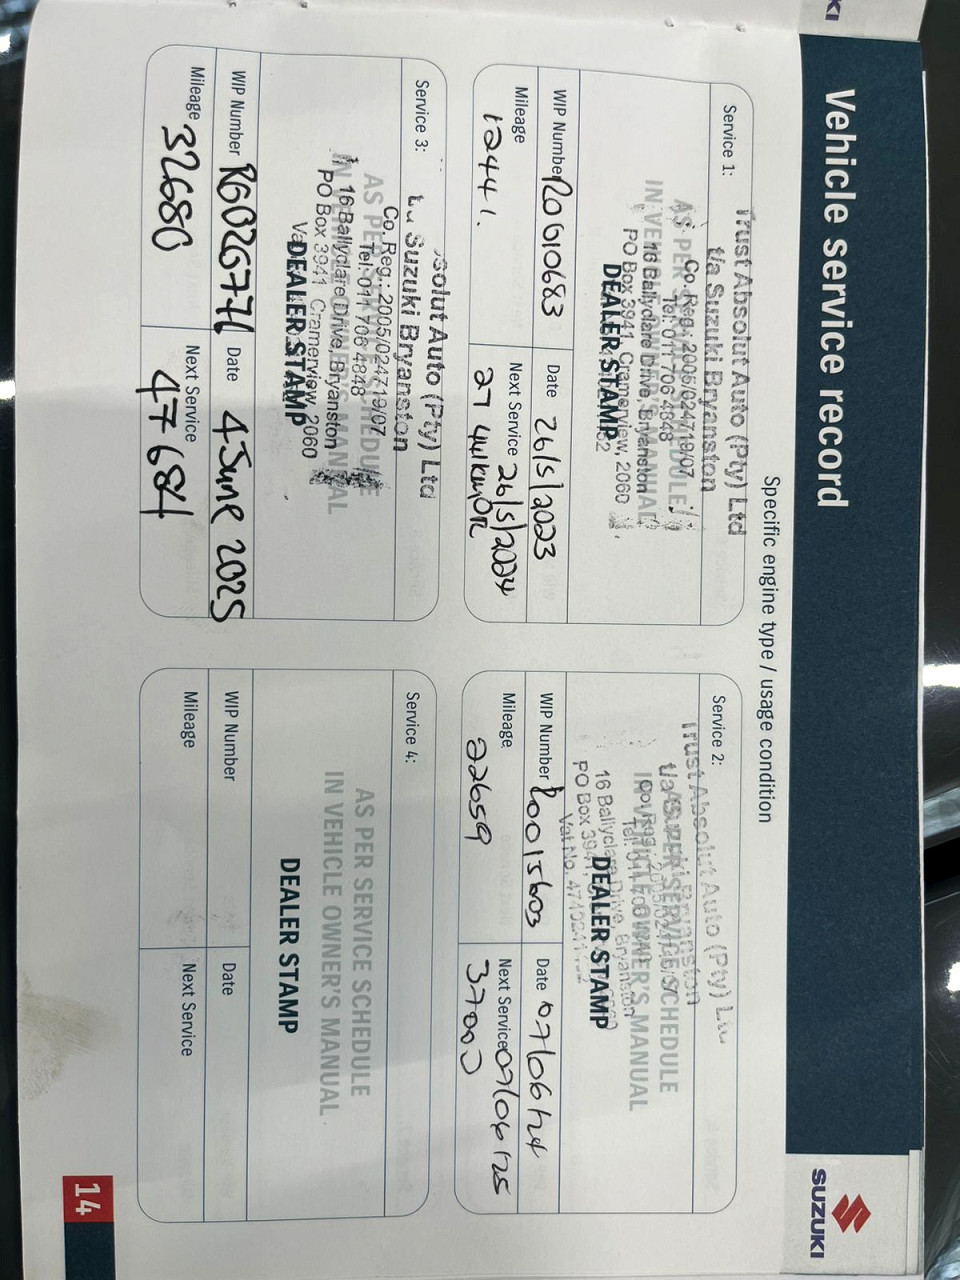 Vehicle service record
SUZUKI
Specific engine type / usage condition
Service 1:
Trust Absolut Auto (Pty) Ltd
t/a Suzuki Bryanston
Co. Reg.: 2005/024719/07
Tel: 011 706 4848
16 Ballyclare Drive, Bryanston
PO Box 3941, Cramerview, 2060
AS PER SERVICE SCHEDULE
IN VEHICLE OWNER'S MANUAL
DEALER STAMP
WIP Number R0010683
Date 26/5/2023
Mileage 12441.
Next Service 26/5/2024
27 441km OR
Service 2:
Trust Absolut Auto (Pty) Ltd
t/a Suzuki Bryanston
16 Ballyclare Drive, Bryanston
PO Box 3941
Vat No. 
AS PER SERVICE SCHEDULE
IN VEHICLE OWNER'S MANUAL
DEALER STAMP
WIP Number R0015603
Date 07/06/24
Mileage 22659
Next Service 07/06/25
37000
Service 3:
solut Auto (Pty) Ltd
t/a Suzuki Bryanston
Co. Reg.: 2005/024719/07
Tel: 011 706 4848
16 Ballyclare Drive, Bryanston
PO Box 3941 Cramerview, 2060
AS PER SERVICE SCHEDULE
IN VEHICLE OWNER'S MANUAL
DEALER STAMP
WIP Number R6026771
Date 4 June 2025
Mileage 32680
Next Service 47684
Service 4:
AS PER SERVICE SCHEDULE
IN VEHICLE OWNER'S MANUAL
DEALER STAMP
WIP Number
Date
Mileage
Next Service
14